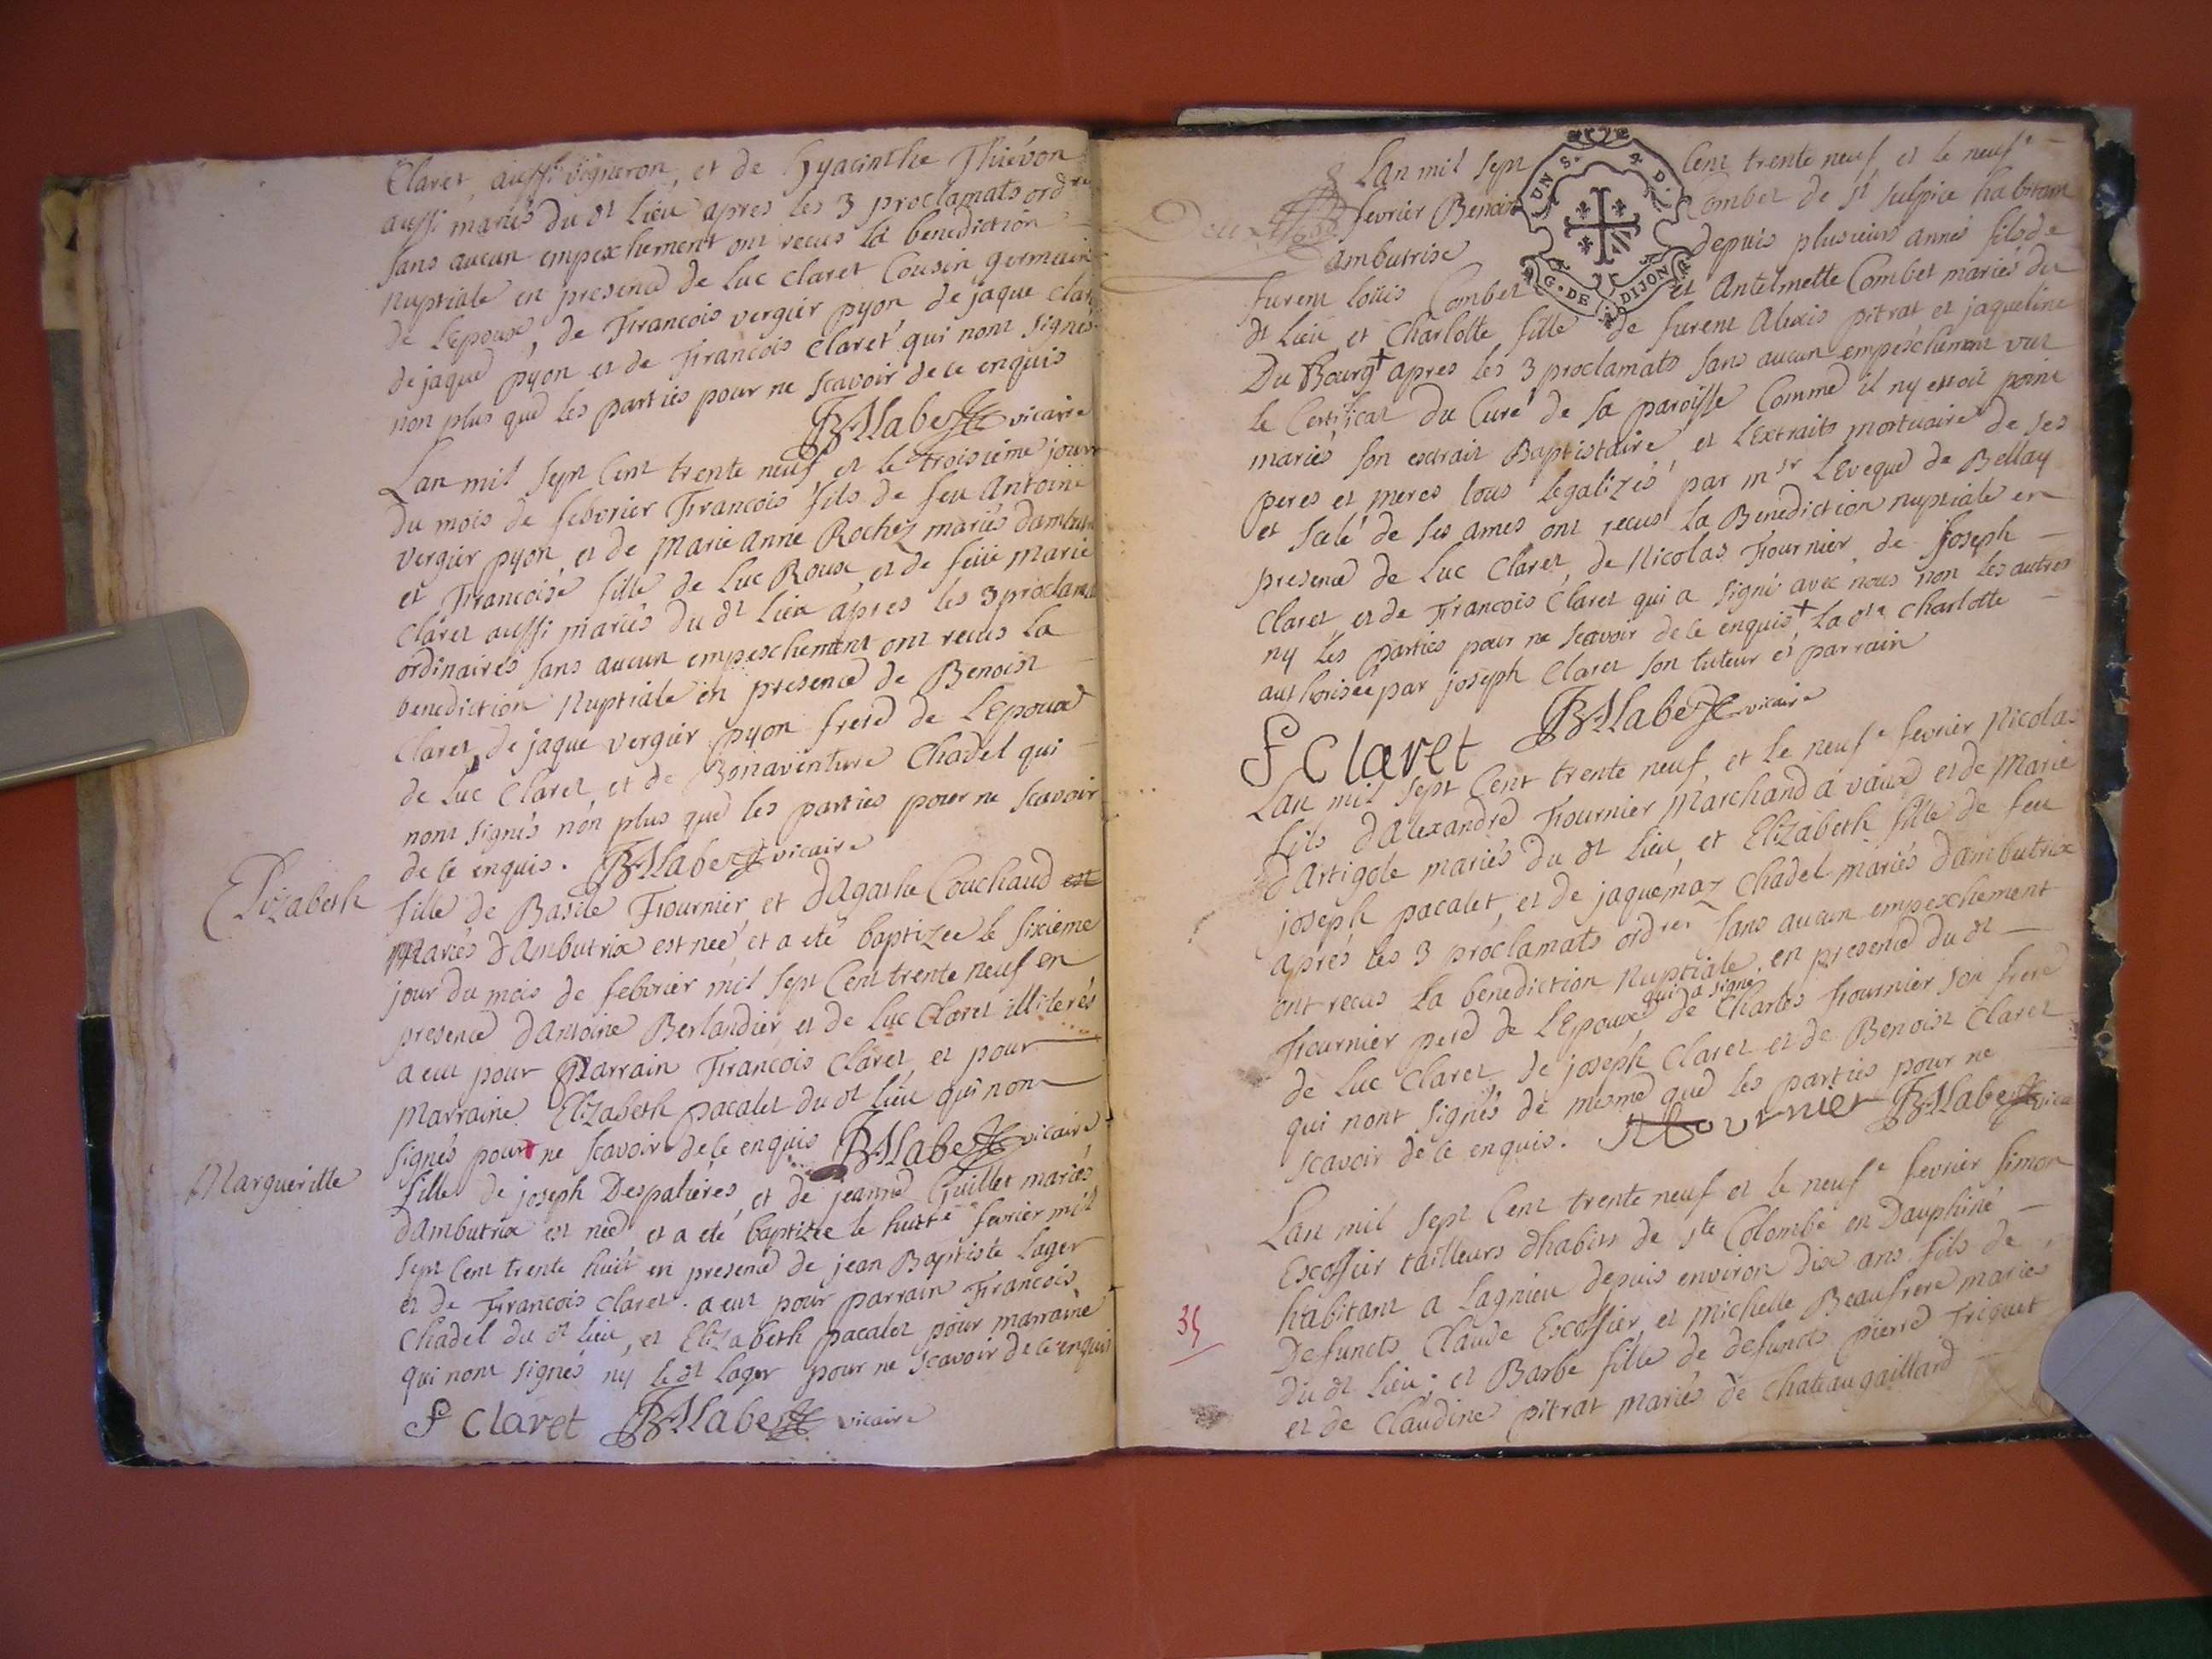 Claret aussi vigneron, et de hyacinthe Thiévon
aussi mariés du dt Lieu apres les 3 proclamats ordres
sans aucun empeschement ont recus la benediction
Nuptiale en presence de Luc Claret Cousin germain
de L'Epoux, de Francois vergier pyon de jaque Clar
de jaque pyon et de Francois Claret qui nont signés
non plus que les parties pour ne scavoir de ce enquis
vicaire
Lan mil sept Cent trente neuf et le troisieme jour
du mois de febvrier Francois fils de feu Antoine
vergier pyon, et de Marie Anne Rochez mariés dambu
et Francoise fille de Luc Roux et de feüe Marie
Claret aussi mariés du dt Lieu apres les 3 proclam
ordinaires sans aucun empeschement ont recus la
benediction Nuptiale en presence de Benoist
Claret, de jaque vergier pyon frere de L'Epoux
de Luc Claret, et de Bonaventure Chadel qui
nont signés non plus que les parties pour ne scavoir
de ce enquis. vicaire
Elizabeth
fille de Basile Fournier, et dAgathe Couchaud est
Mariés dAmbutrix est née, et a eté baptizee le sixieme
jour du mois de febvrier mil sept Cent trente neuf en
presence dAntoine Berlandier et de Luc Claret illiterés
a eut pour Parrain Francois Claret, et pour
Marraine Elizabeth pacalet du dt lieu qui non
signés pour ne scavoir de ce enquis vicaire
Margueritte
fille de joseph Despalières, et de jeanne Guillet mariés
dAmbutrix est née et a eté baptizee le huite fevrier mil
sept Cent trente huit en presence de jean Baptiste Lager
et de Francois Claret. a eut pour parrain Francois
Chadel du dt lieu, et Elizabeth pacalet pour marraine
qui nont signés ny le dt Lager pour ne scavoir de ce enquis
F Claret vicaire
Lan mil sept Cent trente neuf et le neufe
fevrier Benoit Combet de st sulpice habitant
ambutrix depuis plusieurs annés fils de
furent Loüis Combet et Antelmette Combet mariés du
dt Lieu et Charlotte fille de furent Alexis pitrat et jaqueline
Du Bourg+ apres les 3 proclamats sans aucun empeschement vut
le Certificat du Curé de sa paroisse Comme il ny etoit point
mariés son extrait Baptistaire, et L'Extraits mortuaire de ses
peres et meres tous legalizés par msr L'Eveque de Bellay
et scelé de ses armes ont recus la Benediction nuptiale en
presence de Luc Claret, de Nicolas Fournier de Joseph
Claret et de Francois Claret qui a signé avec nous non les autres
ny les parties pour ne scavoir de ce enquis + La dte Charlotte
authorisée par joseph Claret son tuteur et parrain
F Claret vicaire
Lan mil sept Cent trente neuf et le neufe fevrier Nicolas
fils dAlexandre Fournier Marchand a vaux et de Marie
dArtigole mariés du dt Lieu, et Elizabeth fille de feu
joseph pacalet, et de jaquemaz Chadel mariés dAmbutrix
aprés les 3 proclamats ordres sans aucun empeschement
ont recus la benediction Nuptiale en presence du dt
qui a signé
Fournier pere de L'Epoux de Charles Fournier son frere
de Luc Claret, de joseph Claret et de Benoist Claret
qui nont signés de mesme que les parties pour ne
scavoir de ce enquis. Fournier
Lan mil sept Cent trente neuf et le neufe fevrier simon
Escoffier tailleurs dhabits de ste Colombe en Dauphiné
habitant a Lagnieu depuis environ dix ans fils de
Defuncts Claude Escoffier, et Michelle Beaufrere maries
du dt lieu; et Barbe fille de defuncts pierre Friquet
et de Claudine pitrat mariés de Chateaugaillard
35
G. DE DIJON
UN S. 4 D.